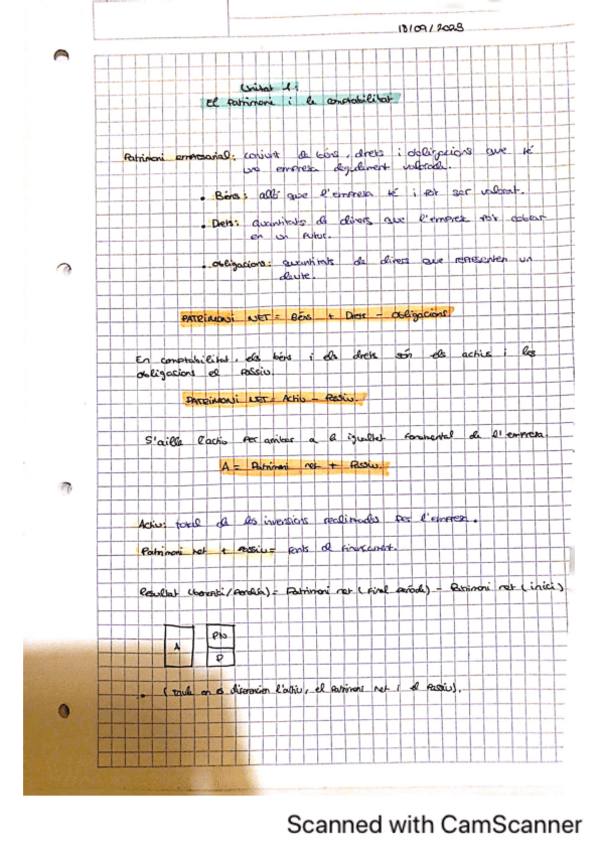 18/09/2023
Unitat 1:
El patrimoni i la comptabilitat
Patrimoni empresarial: conjunt de béns, drets i obligacions que té
una empresa degudament valorada.
• Béns: allò que l'empresa té i pot ser valorat.
• Drets: quantitats de diners que l'empresa pot cobrar
en un futur.
• Obligacions: quantitats de diners que representen un
deute.
PATRIMONI NET = Béns + Drets - Obligacions
En comptabilitat, els béns i els drets són els actius i les
obligacions el passiu.
PATRIMONI NET = Actiu - Passiu.
S'aïlla l'actiu per arribar a la igualtat fonamental de l'empresa.
A = Patrimoni net + Passiu.
Actiu: total de les inversions realitzades per l'empresa.
Patrimoni net + passiu = fonts de finançament.
Resultat (benefici/pèrdua) = Patrimoni net (final període) - Patrimoni net (inici)
A
PN
P
• (taula on es diferencien l'actiu, el patrimoni net i el passiu).
Scanned with CamScanner